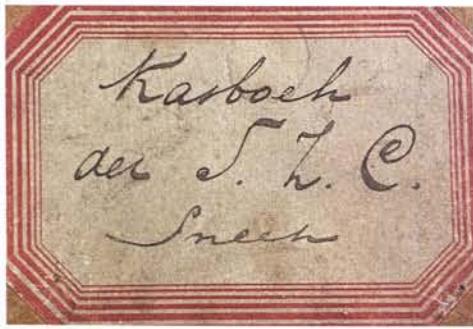 Kasboek
der S. Z. C.
Sneek